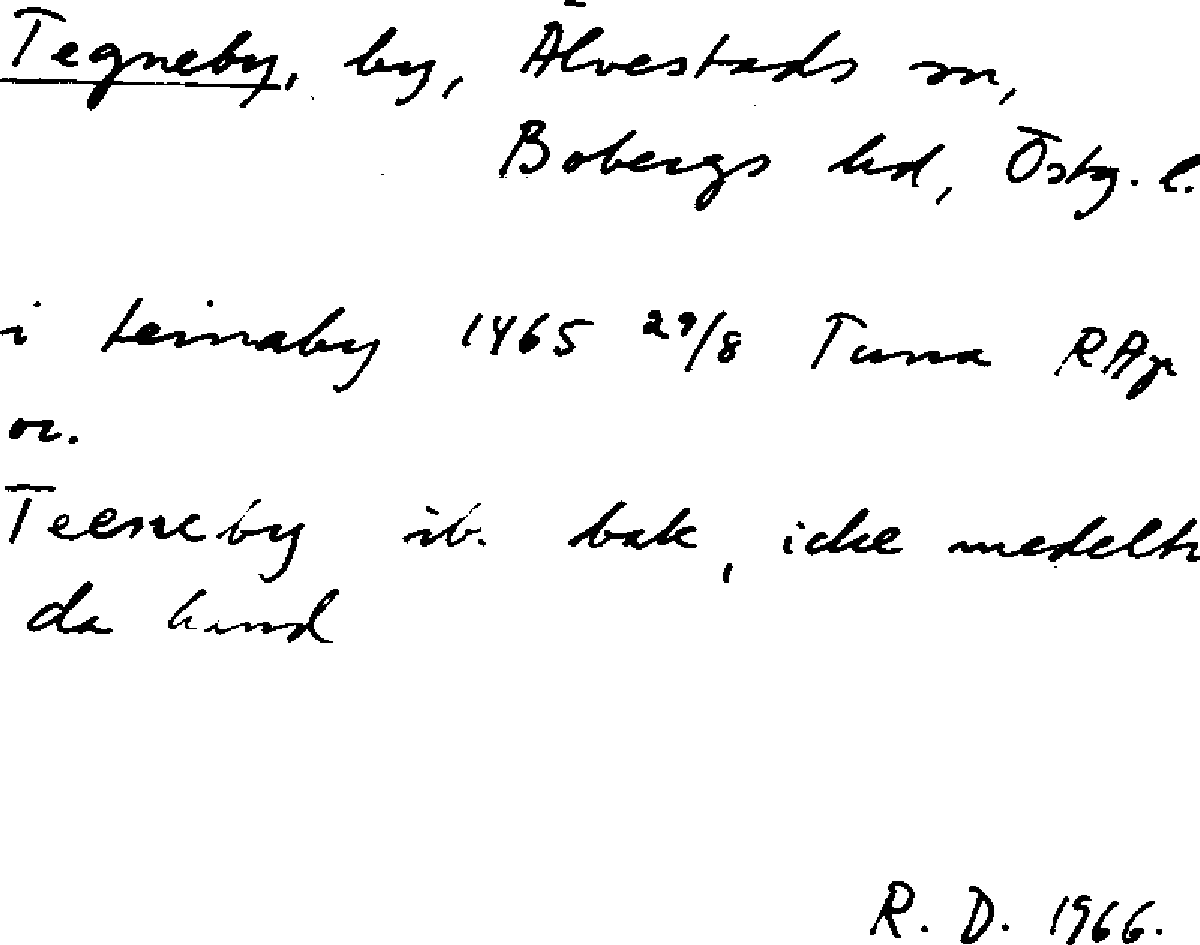 Tegneby, by, Älvestads sn,
Bobergs hd, Östg. l.
i teinaby 1465 29/8 Tuna RAp
or.
Teeneby ib. bak, icke medelti
da hand
R. D. 1966.